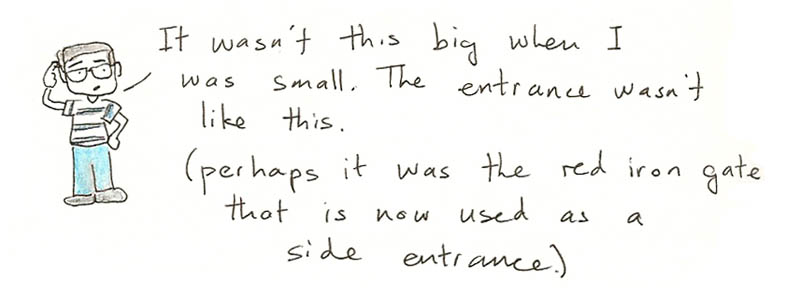 It wasn't this big when I
was small. The entrance wasn't
like this.
(perhaps it was the red iron gate
that is now used as a
side entrance.)